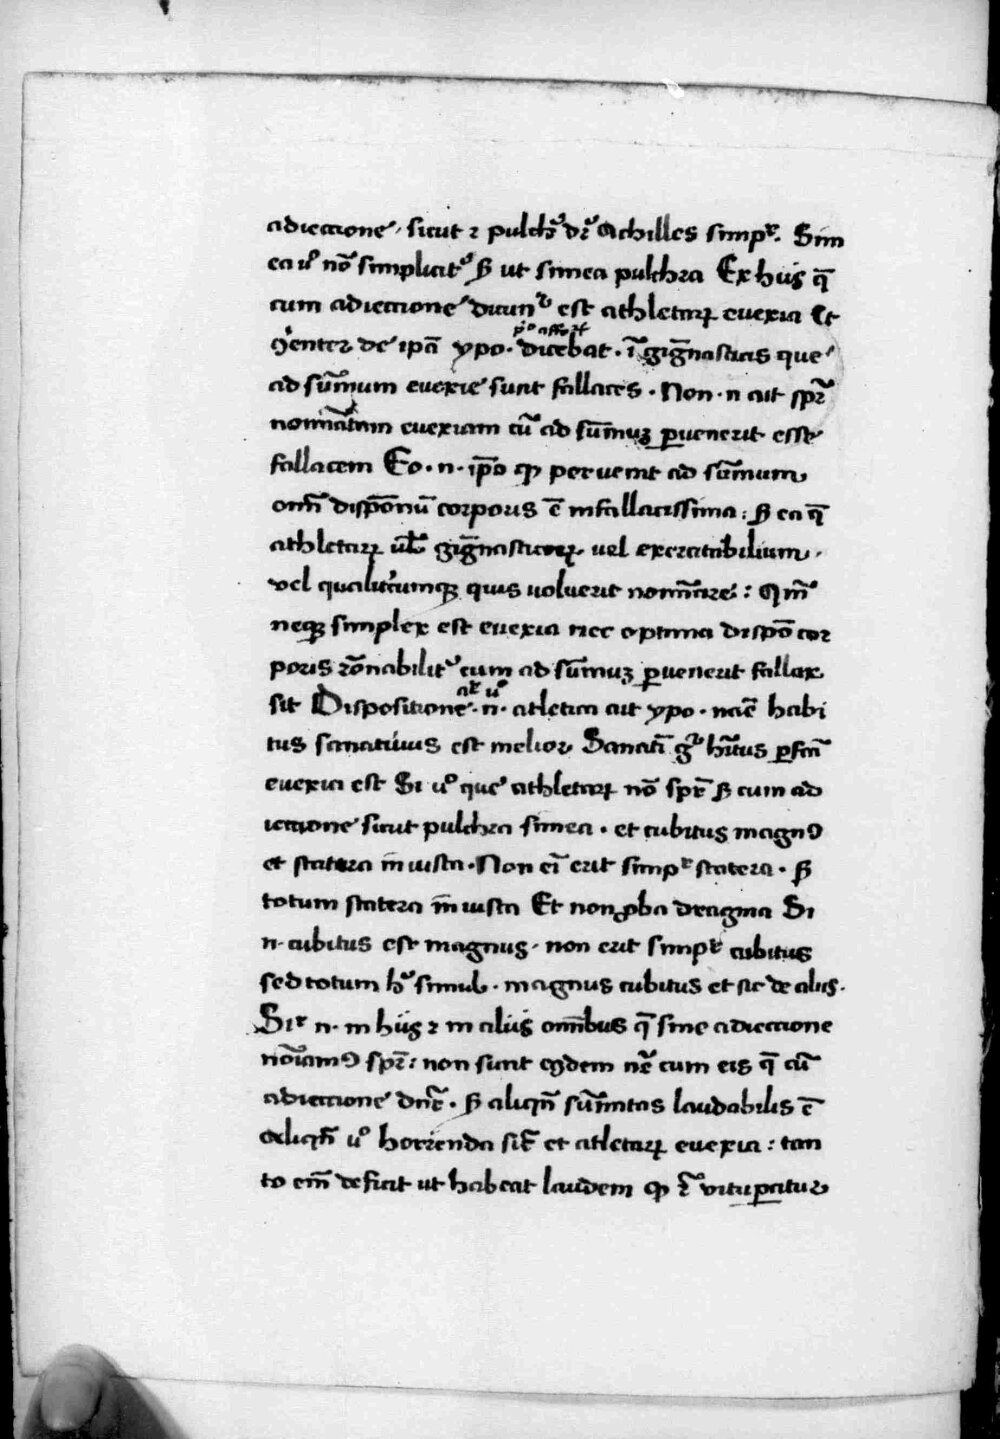 adieccione sicut ⁊ pulch̓ dr̄ Achilles simpr. Sim
ea u̓o nō simplicit̓ sꝫ ut simea pulchra Ex hiis q̄
cum adieccione dicunt̓ est athletaꝝ euexia Et
ꝯ̓enter de ipā ypo. dicebat. ī gīgnasticis que
ad sūmum euexie sunt fallaces. Non. n̄ ait spr̄
nomīatam euexiam cū ad sūmuꝫ ꝑuenerit esse
fallacem Eo. n. ip̄o ꝙ peruenit ad sūmum
om̄ dispōnū corporis ē infallacissima: sꝫ ea q̄
athletaꝝ ul̄ gīgnasticoꝝ uel exercitabilium.
uel qualitercumqꝫ quis uoluerit nomīare: Qm̄
neqꝫ simplex est euexia nec optima dispō cor
poris rōnabilit̓ cum ad sūmuꝫ ꝑuenerit fallax
sit Dispositione. n. atletica ait ypo. nāe habi
tus sanatiuus est melior Sanatī g̓ hītus ꝑfcā
euexia est Si u̓o que athletaꝝ nō spr̄ sꝫ cum ad
ieccione sicut pulchra simea. et cubitus magnꝯ
et statera in iusta. Non eī erit simpr statera. sꝫ
totum statera in iusta Et non ꝓba dragma Si
n. cubitus est magnus. non erit simpr cubitus
sed totum h̓ simul. magnus cubitus et sic de aliis.
Sir n. in hiis ⁊ in aliis om̄ibus q̄ sine adieccione
nōīamꝯ spr̄: non sunt eiꝯdem nē cum eis q̄ cū
adieccione dn̄r. sꝫ aliqn̄ sūmitas laudabilis ē
aliqn̄ u̓o horrenda sic̄ et atletaꝝ euexia: tan
to em̄ deficit ut habeat laudem ꝙ ⁊̄ uituꝑatur